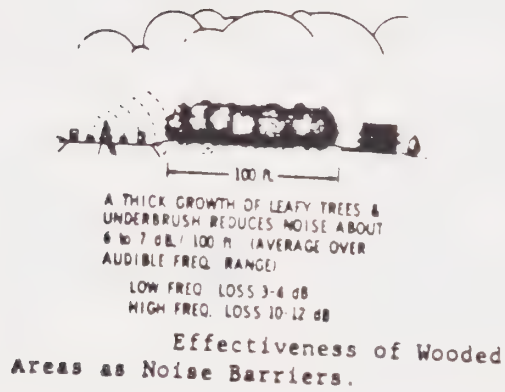 100 ft.
A THICK GROWTH OF LEAFY TREES &
UNDERBRUSH REDUCES NOISE ABOUT
6 to 7 dB / 100 ft (AVERAGE OVER
AUDIBLE FREQ. RANGE)
LOW FREQ. LOSS 3-4 dB
HIGH FREQ. LOSS 10-12 dB
Effectiveness of Wooded
Areas as Noise Barriers.